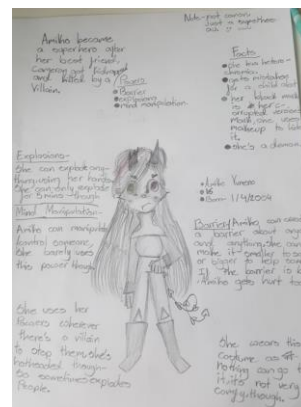 Note- not canon
just a superhero
au
Amiko became
a superhero after
her best friend,
got kidnapped
and killed by a
Villain.
Powers
Barrier
explosions
mind manipulation
Facts
she has
gets mistaken
for a child
her
is
she uses
makeup to hide
it.
she's a demon
Explosions-
She can explode any-
thing using her hands
She can only explode
for 5 mins though
Mind Manipulation-
Amiko can manipulate
control someone,
She barely uses
this power though
Amiko
16
Born- 1/4/2004
Barrier/Amiko can
a barrier about any
and anything, she can
make it smaller to
or bigger to help
If the barrier is
Amiko gets hurt too
She uses her
Powers wherever
there's a villain
to stop them, she's
hotheaded though
so sometimes explodes
People.
She wears this
costume as
nothing can go
it, its not very
comfy though,